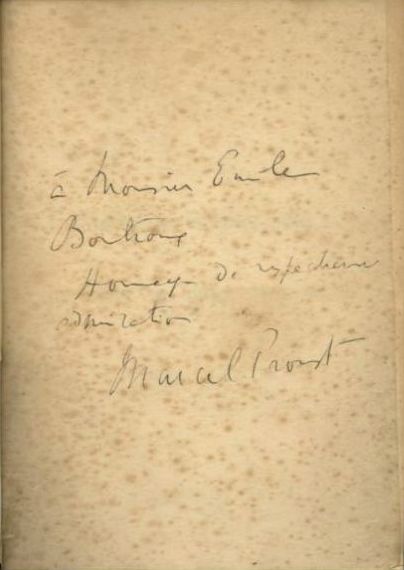 à Monsieur Emile
Boutroux
Hommage de respectueuse
admiration
Marcel Proust